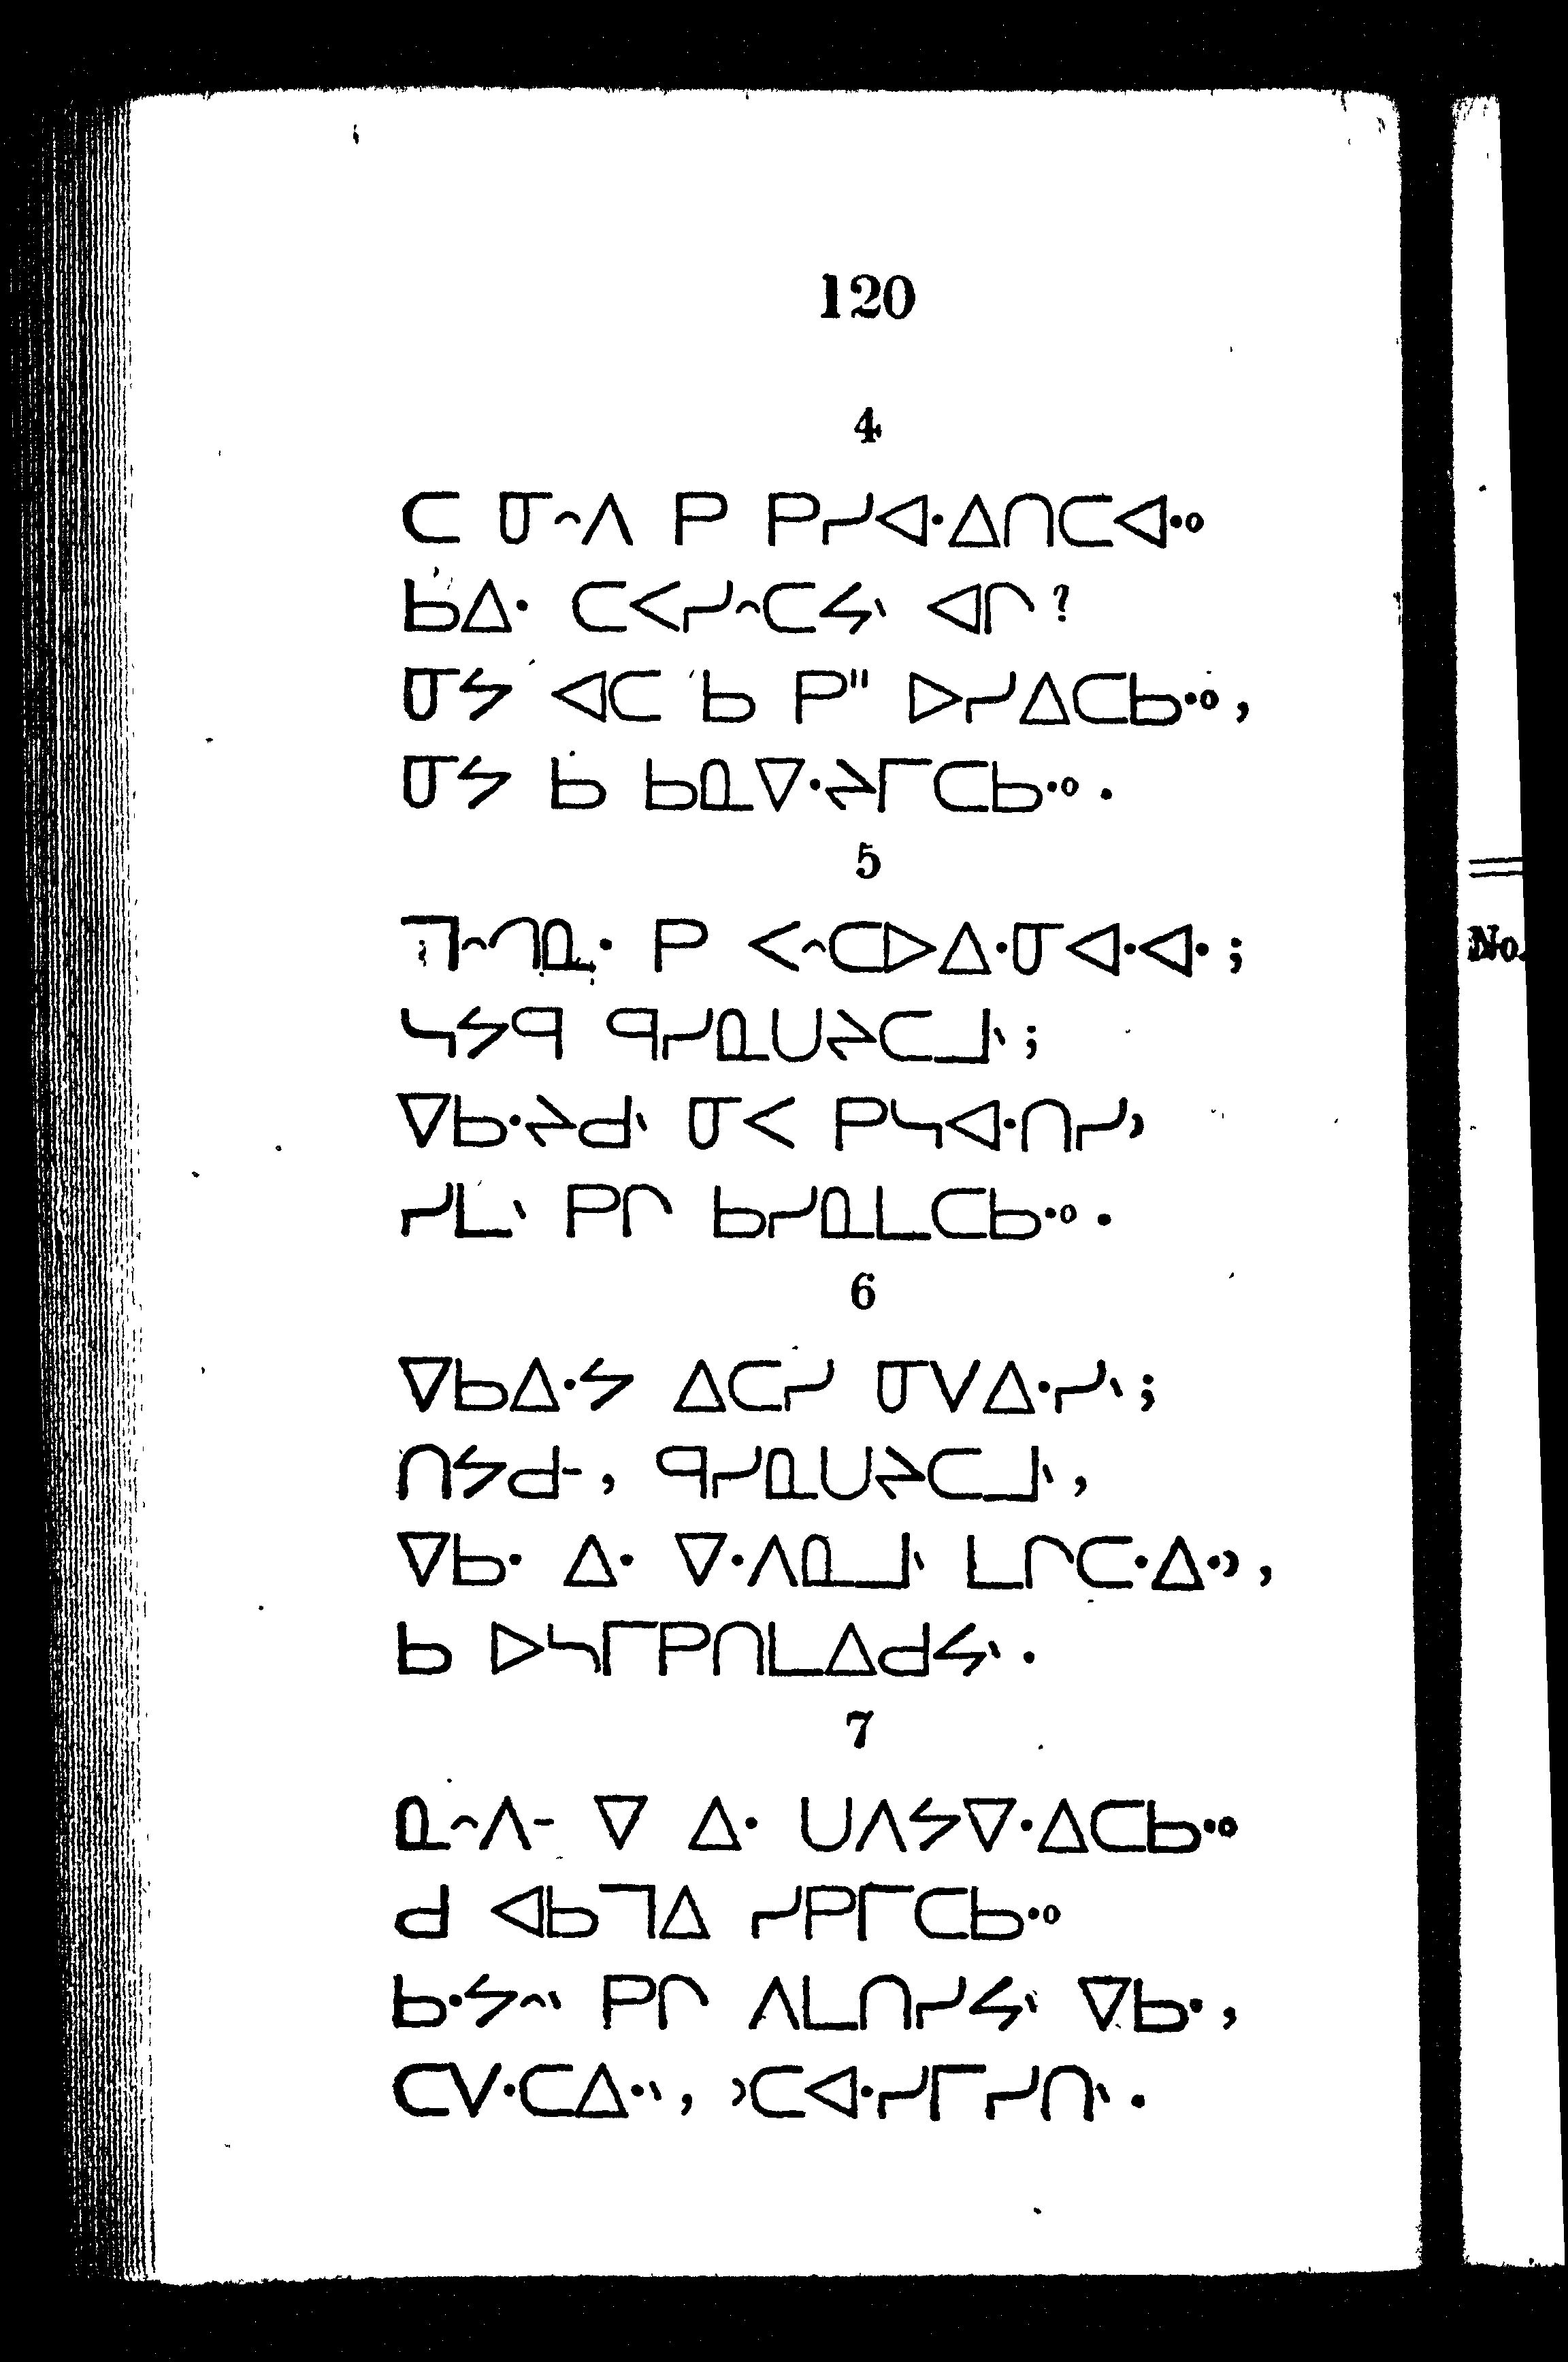 120
4
ᑕ ᓂᐢᐱ ᑭ ᑭᓯᐊᐧᐃᑎᑕᐊᐧᐤ
ᑲᐃᐧ ᑕᐸᓯᐢᑕᔭᐠ ᐊᒋ?
ᓂᔭ ᐊᑕ ᑲ ᑭᐦ ᐅᓯᐃᑕᑲᐧᐤ,
ᓂᔭ ᑲ ᑲᓇᐁᐧᔨᒥᑕᑲᐧᐤ.
5
ᒣᐢᒉᓇᐧ ᑭ ᐸᐢᑕᐅᐃᐧᓂᐊᐧᐊᐧ;
ᓴᔭᑫ ᑫᓯᓇᑌᔨᑕᒧᐠ;
ᐁᑲᐧᔨᑯᐠ ᓂᐸ ᑭᓴᐊᐧᑎᓯᐣ
ᓯᒪᐠ ᑭᒋ ᑲᓯᓇᒪᑕᑲᐧᐤ.
6
ᐁᑲᐃᐧᔭ ᐃᑕᓯ ᓂᐯᐃᐧᓯᐠ;
ᑎᔭᑯᐨ, ᑫᓯᓇᑌᔨᑕᒧᐠ,
ᐁᑲᐧ ᐃᐧ ᐁᐧᐱᓇᒧᐠ ᒪᒋᑕᐧᐃᐧᐣ,
ᑲ ᐅᓴᒥᑭᑎᒪᐃᑯᔭᐠ.
7
ᓇᐢᐱᐨ ᐁ ᐃᐧ ᑌᐱᔭᐁᐧᐃᑕᑲᐧᐤ
ᑯ ᐊᑲᒣᐃ ᓯᑭᒥᑕᑲᐧᐤ
ᑲᐧᔭᐢᐠ ᑭᒋ ᐱᒪᑎᓯᔭᐠ ᐁᑲᐧ,
ᑕᐯᐧᑕᐃᐧᐠ, ᐣᑕᐊᐧᓯᒥᓯᑎᐠ.
No.